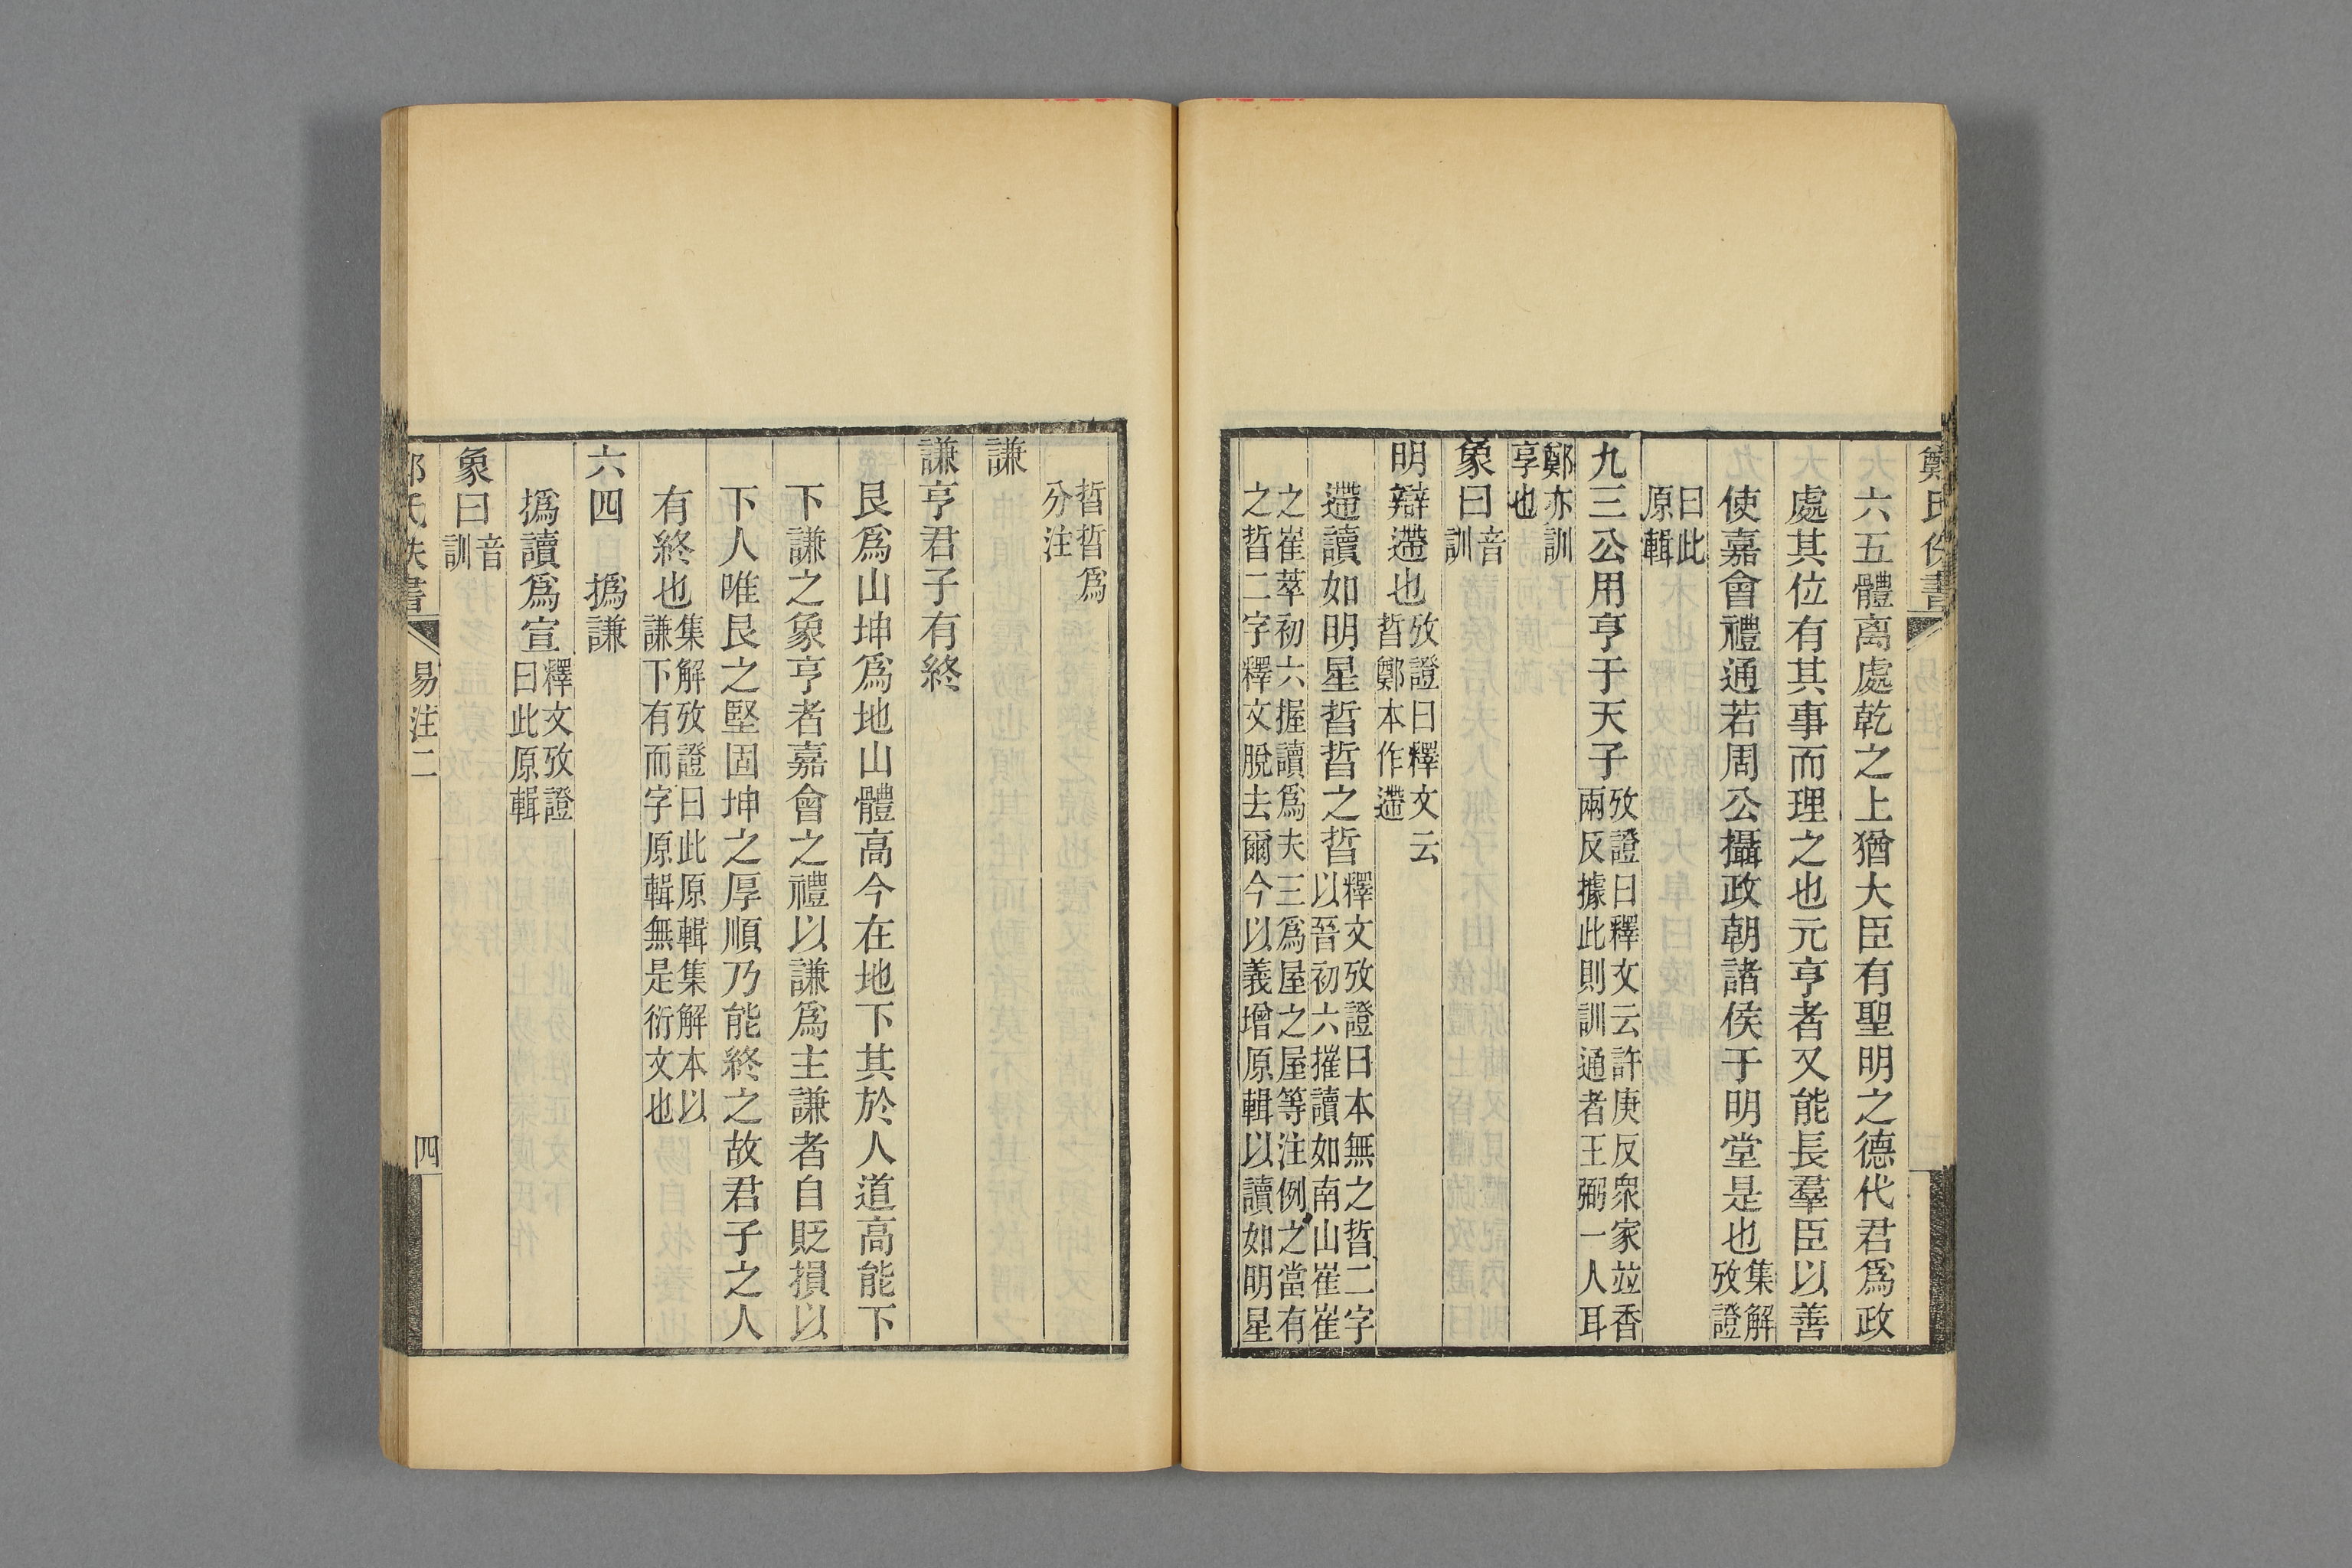 鄭氏佚書
六五體离處乾之上猶大臣有聖明之德代君爲政
處其位有其事而理之也元亨者又能長羣臣以善
使嘉會禮通若周公攝政朝諸侯于明堂是也集解
攷證
曰此
原輯
九三公用亨于天子攷證曰釋文云許庚反衆家竝香
兩反據此則訓通者王弼一人耳
鄭亦訓
享也
象曰音
訓
明辯遰也攷證曰釋文云
晢鄭本作遰
遰讀如明星晢晢之晢釋文攷證曰本無之晢二字
以晉初六摧讀如南山崔崔
之崔萃初六握讀爲夫三爲屋之屋等注例之當有
之晢二字釋文脫去爾今以義增原輯以讀如明星
晢晢爲
分注
謙
謙亨君子有終
艮爲山坤爲地山體高今在地下其於人道高能下
下謙之象亨者嘉會之禮以謙爲主謙者自貶損以
下人唯艮之堅固坤之厚順乃能終之故君子之人
有終也集解攷證曰此原輯集解本以
謙下有而字原輯無是衍文也
六四　撝謙
撝讀爲宣釋文攷證
曰此原輯
象曰音
訓
鄭氏佚書　易注二　四